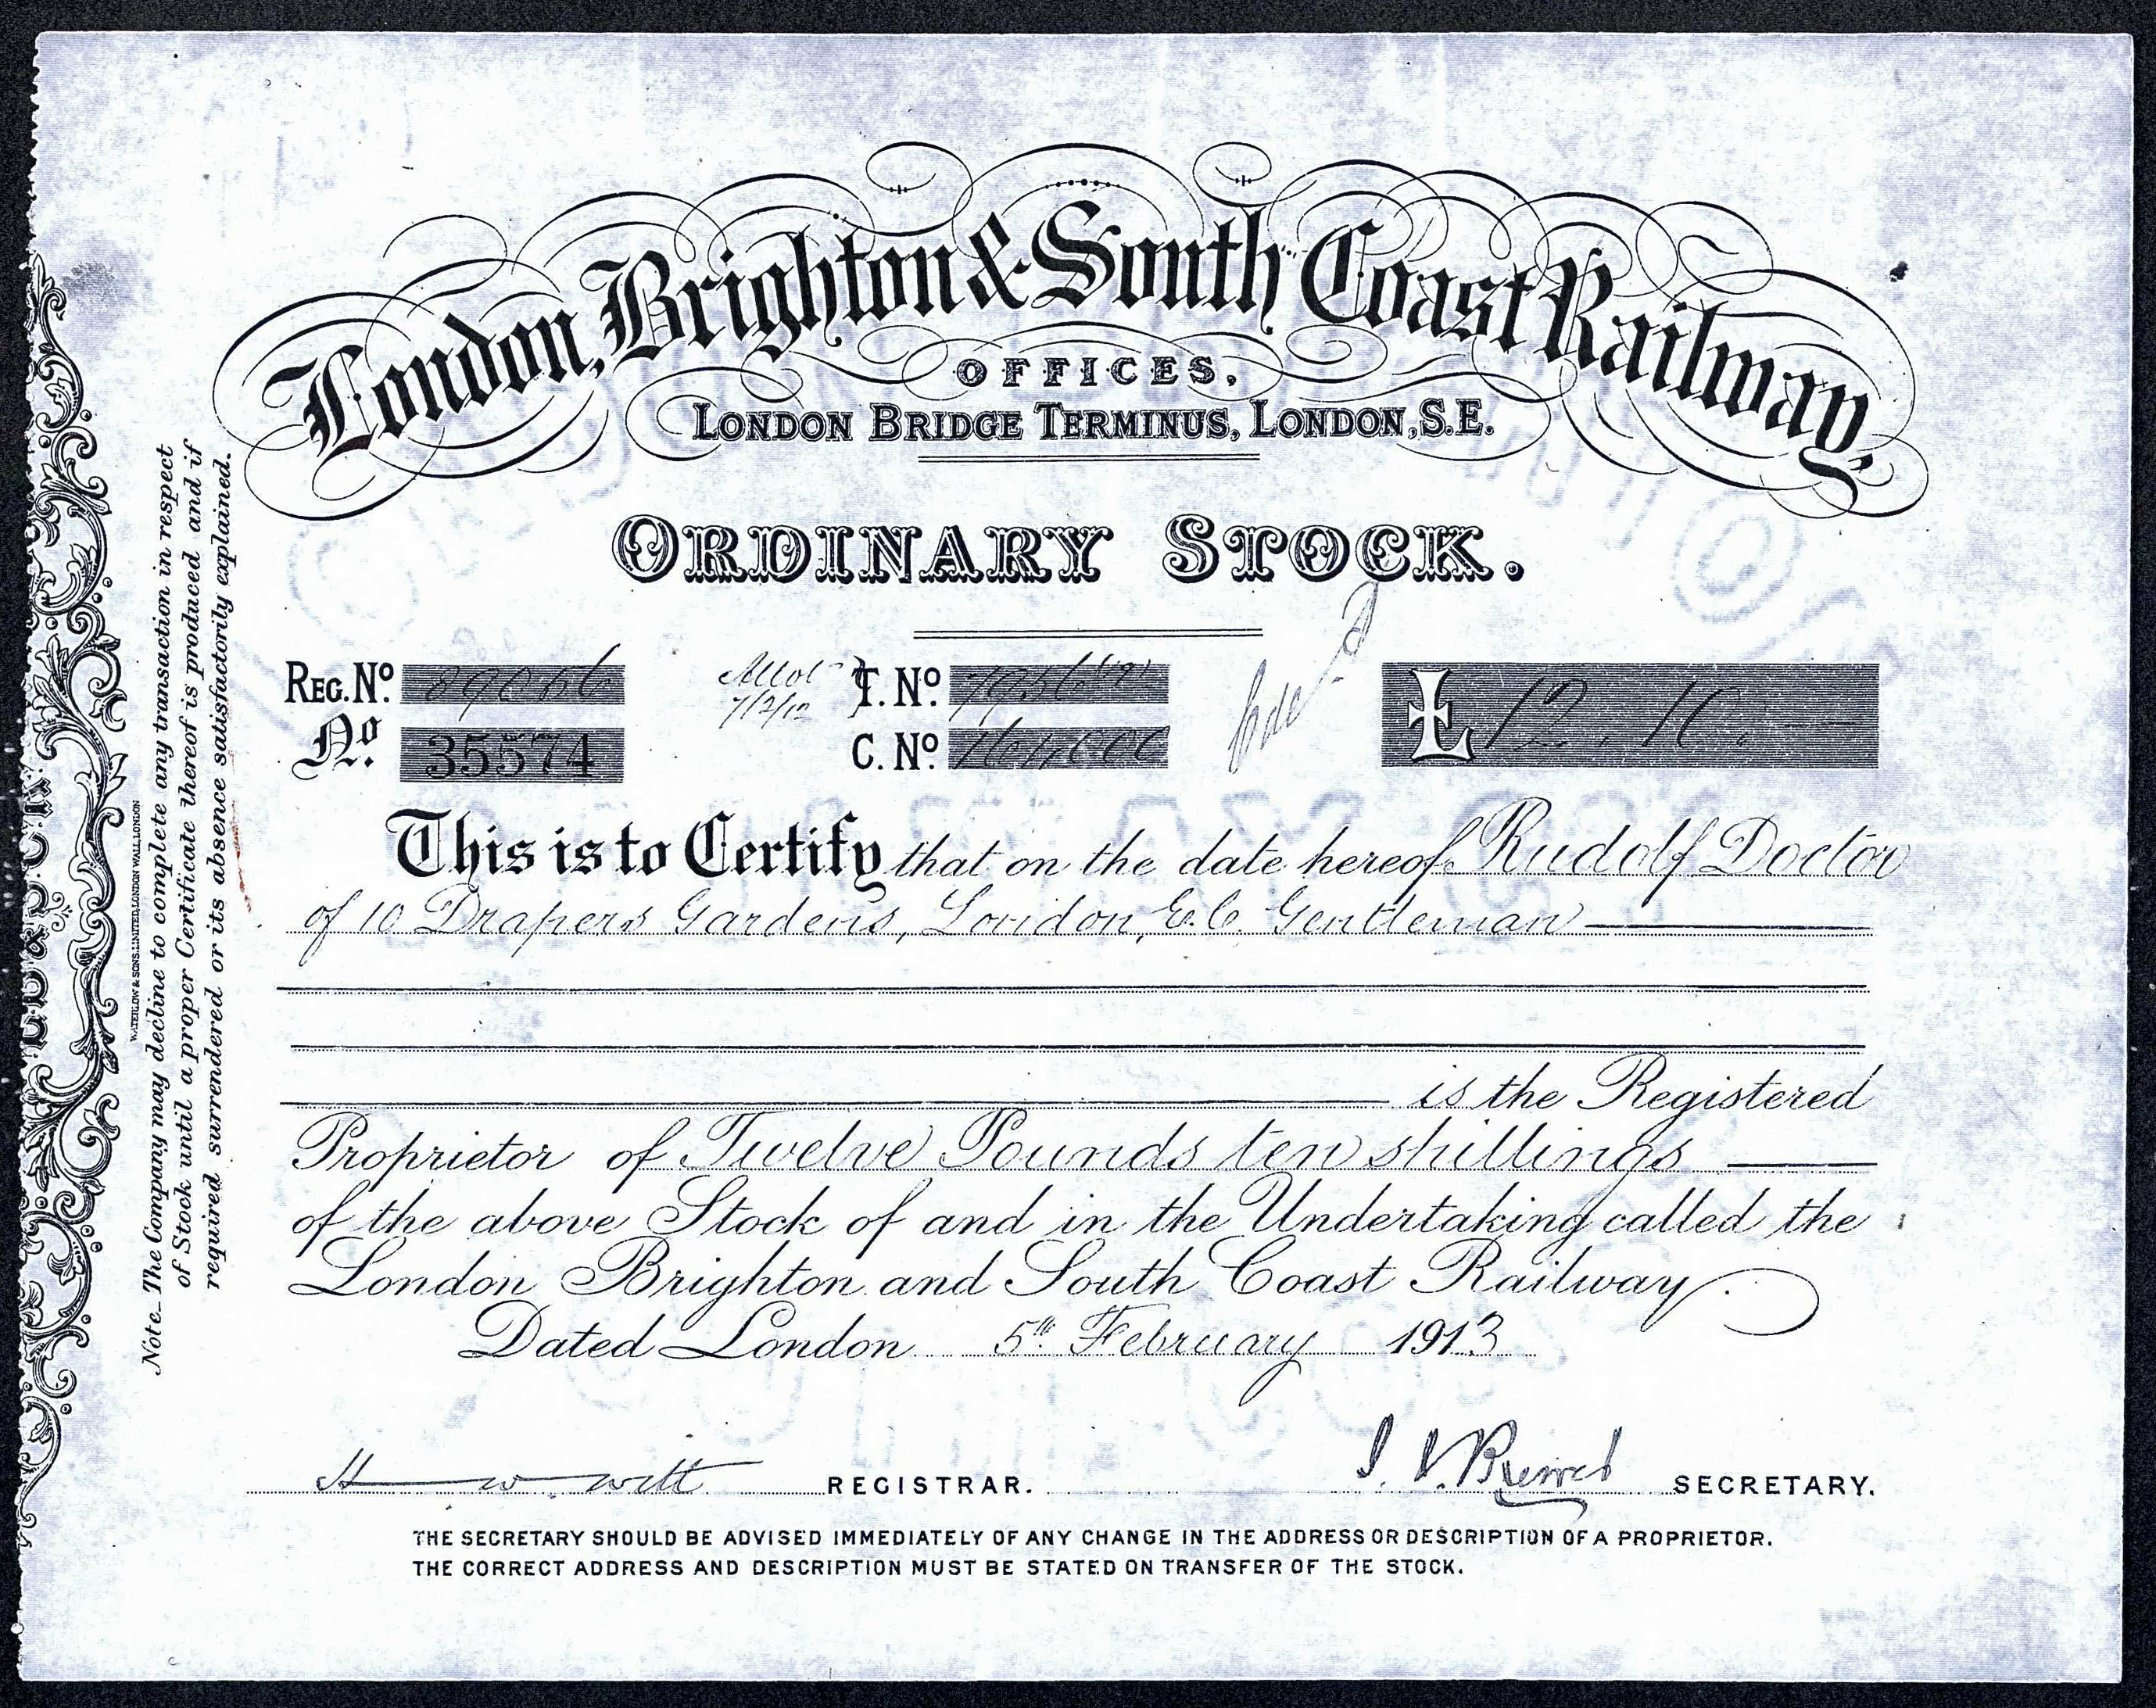 London, Brighton & South Coast Railway,
OFFICES.
LONDON BRIDGE TERMINUS, LONDON, S.E.
ORDINARY STOCK.
REG. No. 89066
Allot
7/2/12
T. No.
£ 12.10.—
No. 35574
C. No.
This is to Certify that on the date hereof Rudolf Doctor
of 10 Drapers Gardens, London, E.C. Gentleman
is the Registered
Proprietor of Twelve Pounds ten shillings
of the above Stock of and in the Undertaking called the
London Brighton and South Coast Railway.
Dated London 5th February 1913
REGISTRAR.
SECRETARY.
THE SECRETARY SHOULD BE ADVISED IMMEDIATELY OF ANY CHANGE IN THE ADDRESS OR DESCRIPTION OF A PROPRIETOR.
THE CORRECT ADDRESS AND DESCRIPTION MUST BE STATED ON TRANSFER OF THE STOCK.
Note._The Company may decline to complete any transaction in respect
of Stock until a proper Certificate thereof is produced and if
required surrendered or its absence satisfactorily explained.
WATERLOW & SONS, LIMITED, LONDON WALL, LONDON